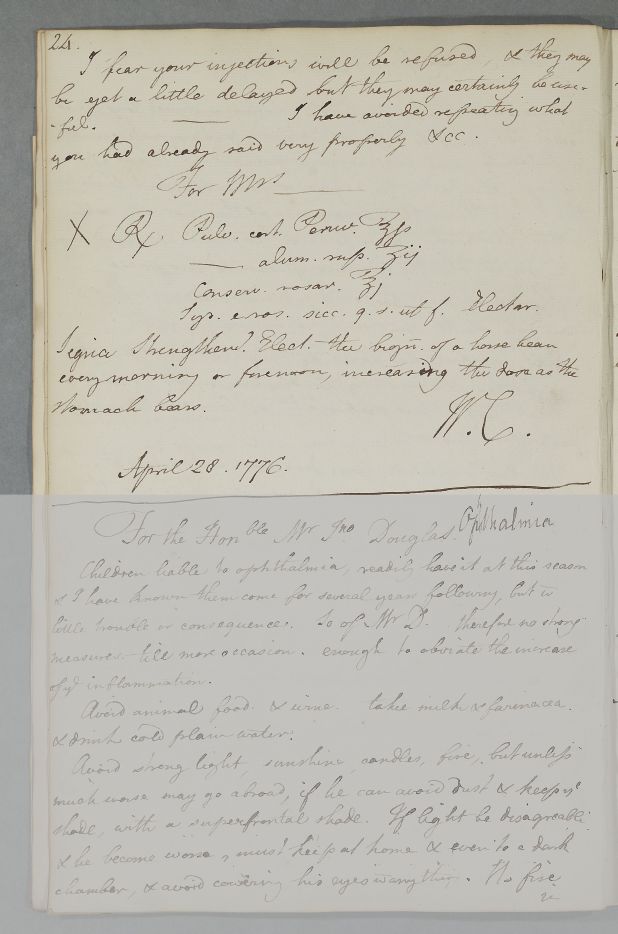 24.
I fear your injections will be refused, & they may
be yet a little delayed but they may certainly be use-
-ful. I have avoided repeating what
you had already said very properly &cc.
For Mrs
X Rx Pulv. cort. Peruv. ℥ß
alum. rup. ʒij
Conserv. rosar. ℥j
Syr. e ros. sicc. q. s. ut f. Electar.
Signa Strengthen.g Elect. the bign. of a horse bean
every morning or forenoon, increasing the dose as the
stomach bears.
W. C.
April 28. 1776.
For the Honble Mr Jno Douglas. Ophthalmia
Children liable to ophthalmia, readily have it at this season
& I have known them come for several years following, but wt
little trouble or consequence. So of Mr D. therefore no strong
measures till more occasion. enough to obviate the increase
of ye inflammation.
Avoid animal food & wine. take milk & farinacea.
& drink cold plain water.
Avoid strong light, sunshine, candles, fire, but unless
much worse may go abroad, if he can avoid dust & keep in ye
shade, with a superfrontal shade. If light be disagreeable
& he become worse, must keep at home & even to a dark
chamber, & avoid covering his eyes wt any thing. No fire
in